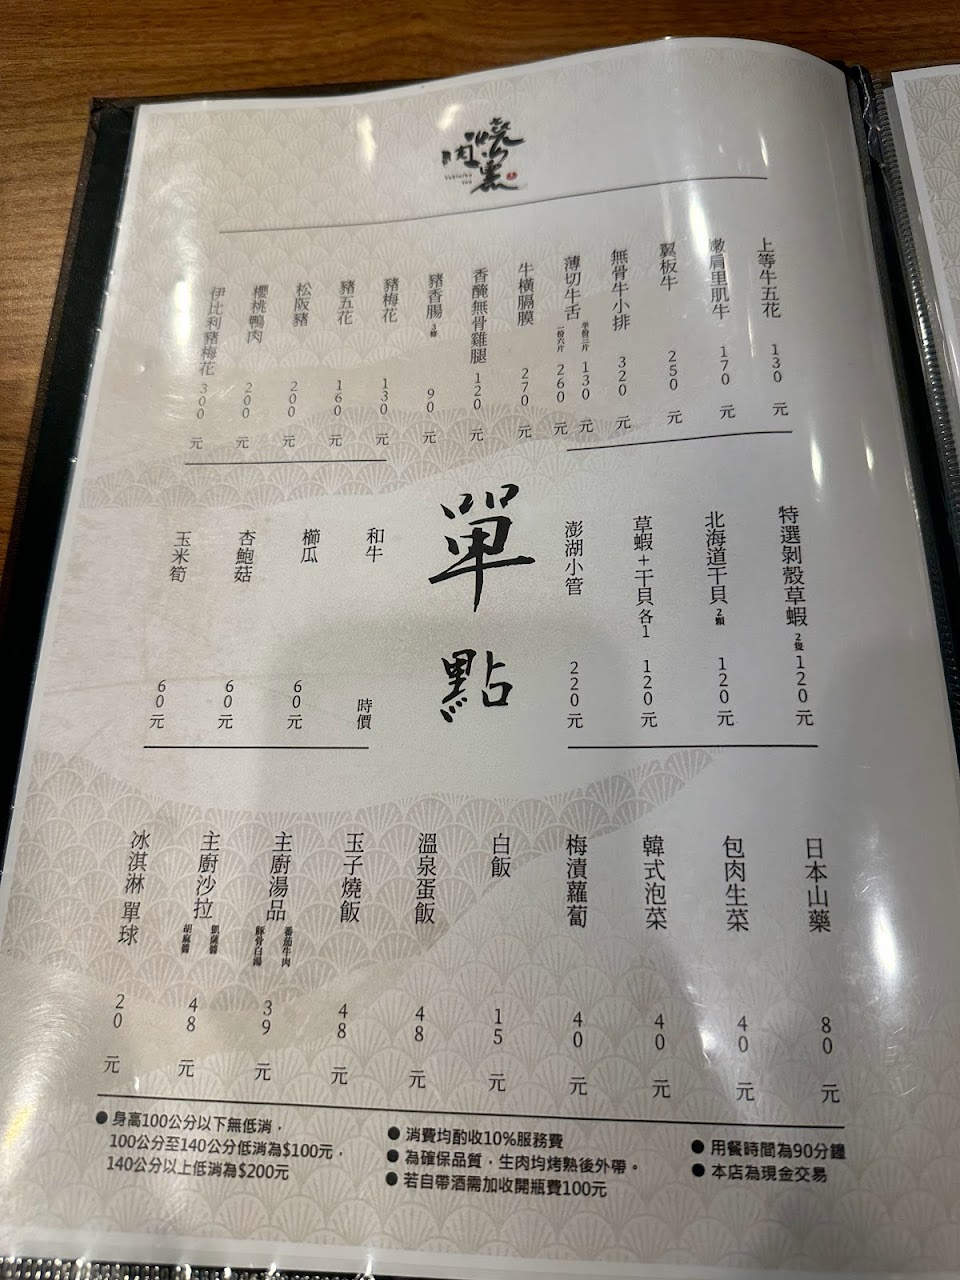 燒肉窯
上等牛五花 130元
嫩肩里肌牛 170元
翼板牛 250元
無骨牛小排 320元
薄切牛舌 半份三片 130元
一份六片 260元
牛橫膈膜 270元
香醃無骨雞腿 120元
豬香腸 3條 90元
豬梅花 130元
豬五花 160元
松阪豬 200元
櫻桃鴨肉 200元
伊比利豬梅花 300元
單點
特選剝殼草蝦 2隻 120元
北海道干貝 2顆 120元
草蝦+干貝各1 120元
澎湖小管 220元
和牛 時價
櫛瓜 60元
杏鮑菇 60元
玉米筍 60元
日本山藥 80元
包肉生菜 40元
韓式泡菜 40元
梅漬蘿蔔 40元
白飯 15元
溫泉蛋飯 48元
玉子燒飯 48元
主廚湯品 番茄牛肉 豚骨白湯 39元
主廚沙拉 凱薩醬 胡麻醬 48元
冰淇淋 單球 20元
●身高100公分以下無低消，
100公分至140公分低消為$100元，
140公分以上低消為$200元
●消費均酌收10%服務費
●為確保品質，生肉均烤熟後外帶。
●若自帶酒需加收開瓶費100元
●用餐時間為90分鐘
●本店為現金交易